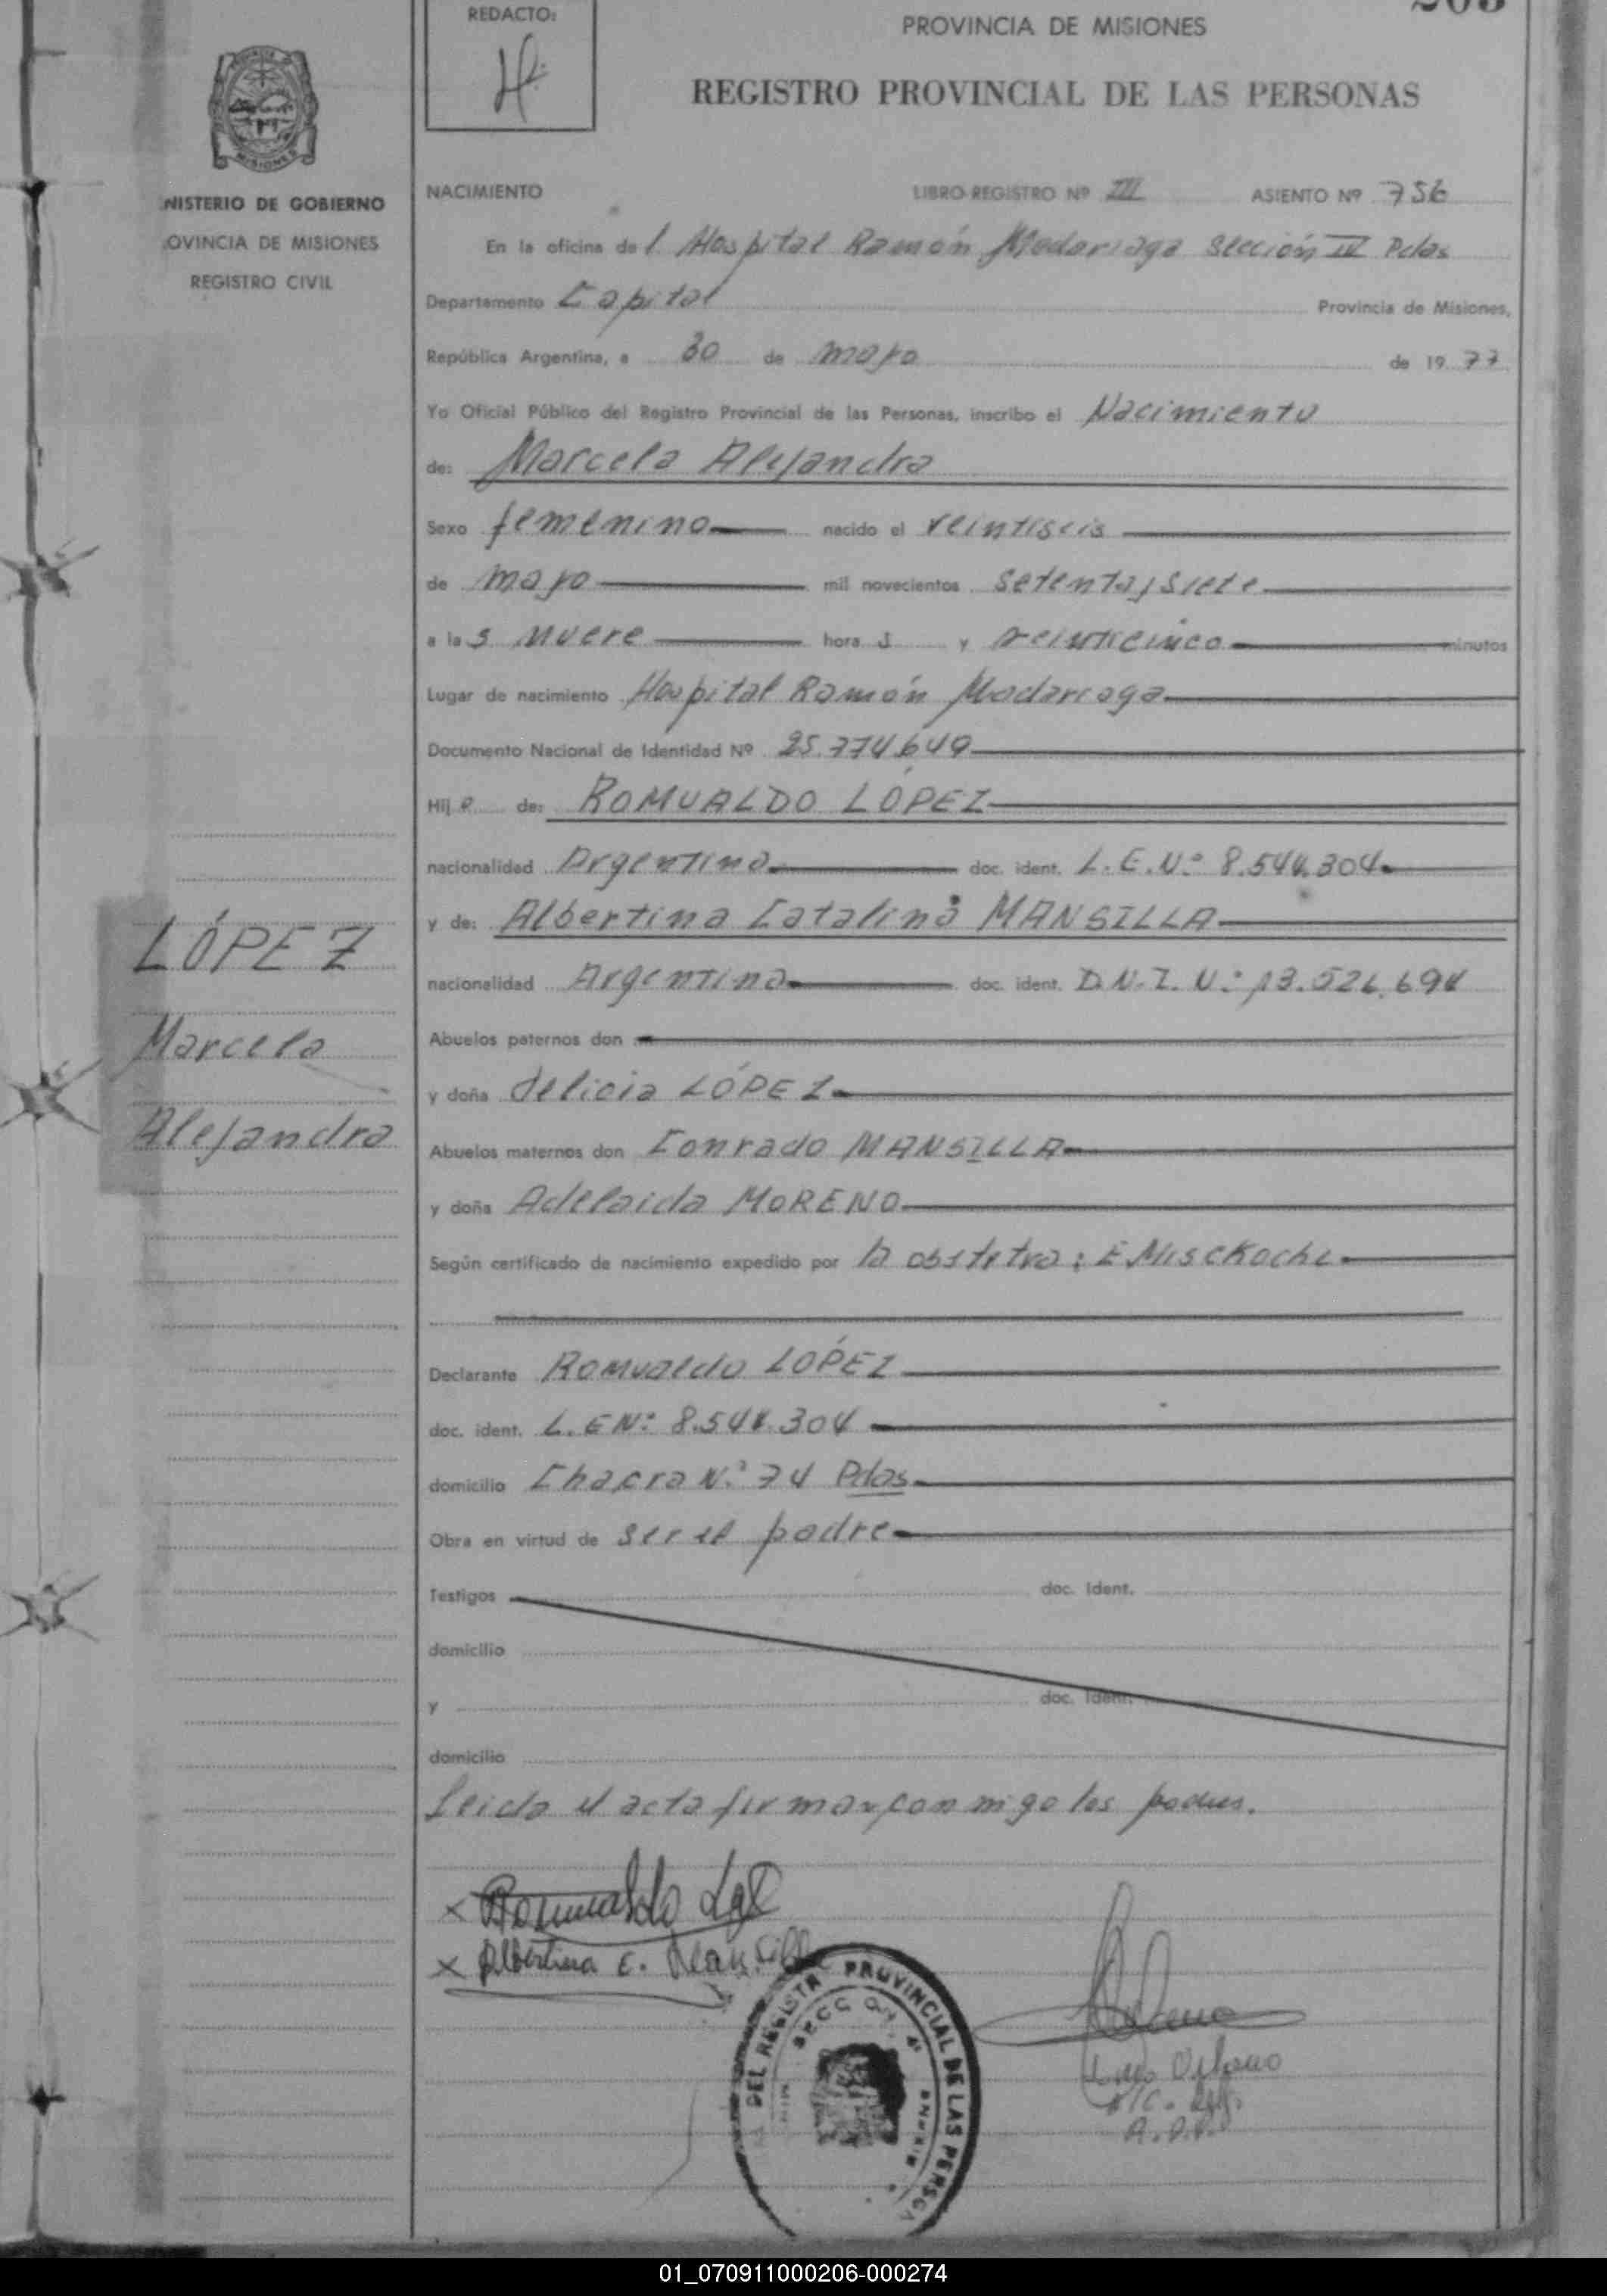 REDACTO:
PROVINCIA DE MISIONES
REGISTRO PROVINCIAL DE LAS PERSONAS
MISIONES
NISTERIO DE GOBIERNO
OVINCIA DE MISIONES
REGISTRO CIVIL
NACIMIENTO LIBRO-REGISTRO Nº III ASIENTO Nº 756
En la oficina del Hospital Ramón Madariaga Sección IV Pdas
Departamento Capital Provincia de Misiones,
República Argentina, a 30 de mayo de 1977
Yo Oficial Público del Registro Provincial de las Personas, inscribo el Nacimiento
de: Marcela Alejandra
Sexo femenino nacido el veintiseis
de mayo mil novecientos setenta y siete
a las nueve hora s y veinticinco minutos
Lugar de nacimiento Hospital Ramón Madariaga
Documento Nacional de Identidad Nº 25.774.649
Hija de: ROMUALDO LÓPEZ
nacionalidad Argentina doc. ident. L.E.Nº 8.544.304
y de: Albertina Catalina MANSILLA
nacionalidad Argentina doc. ident. D.N.I. Nº 13.526.694
Abuelos paternos don
y doña delicia LÓPEZ
Abuelos maternos don Conrado MANSILLA
y doña Adelaida MORENO
Según certificado de nacimiento expedido por la obstetra: E
Declarante Romualdo LÓPEZ
doc. ident. L.E Nº 8.544.304
domicilio Chacra Nº 74 Pdas
Obra en virtud de ser el padre
Testigos doc. Ident.
domicilio
y doc. Ident.
domicilio
Leida el acta firman conmigo los padres.
LÓPEZ
Marcela
Alejandra
x Romualdo
x Albertina C. Mansilla
DEL REGISTR PROVINCIAL DE LAS PERSO
SECC ON 4ª
01_070911000206-000274